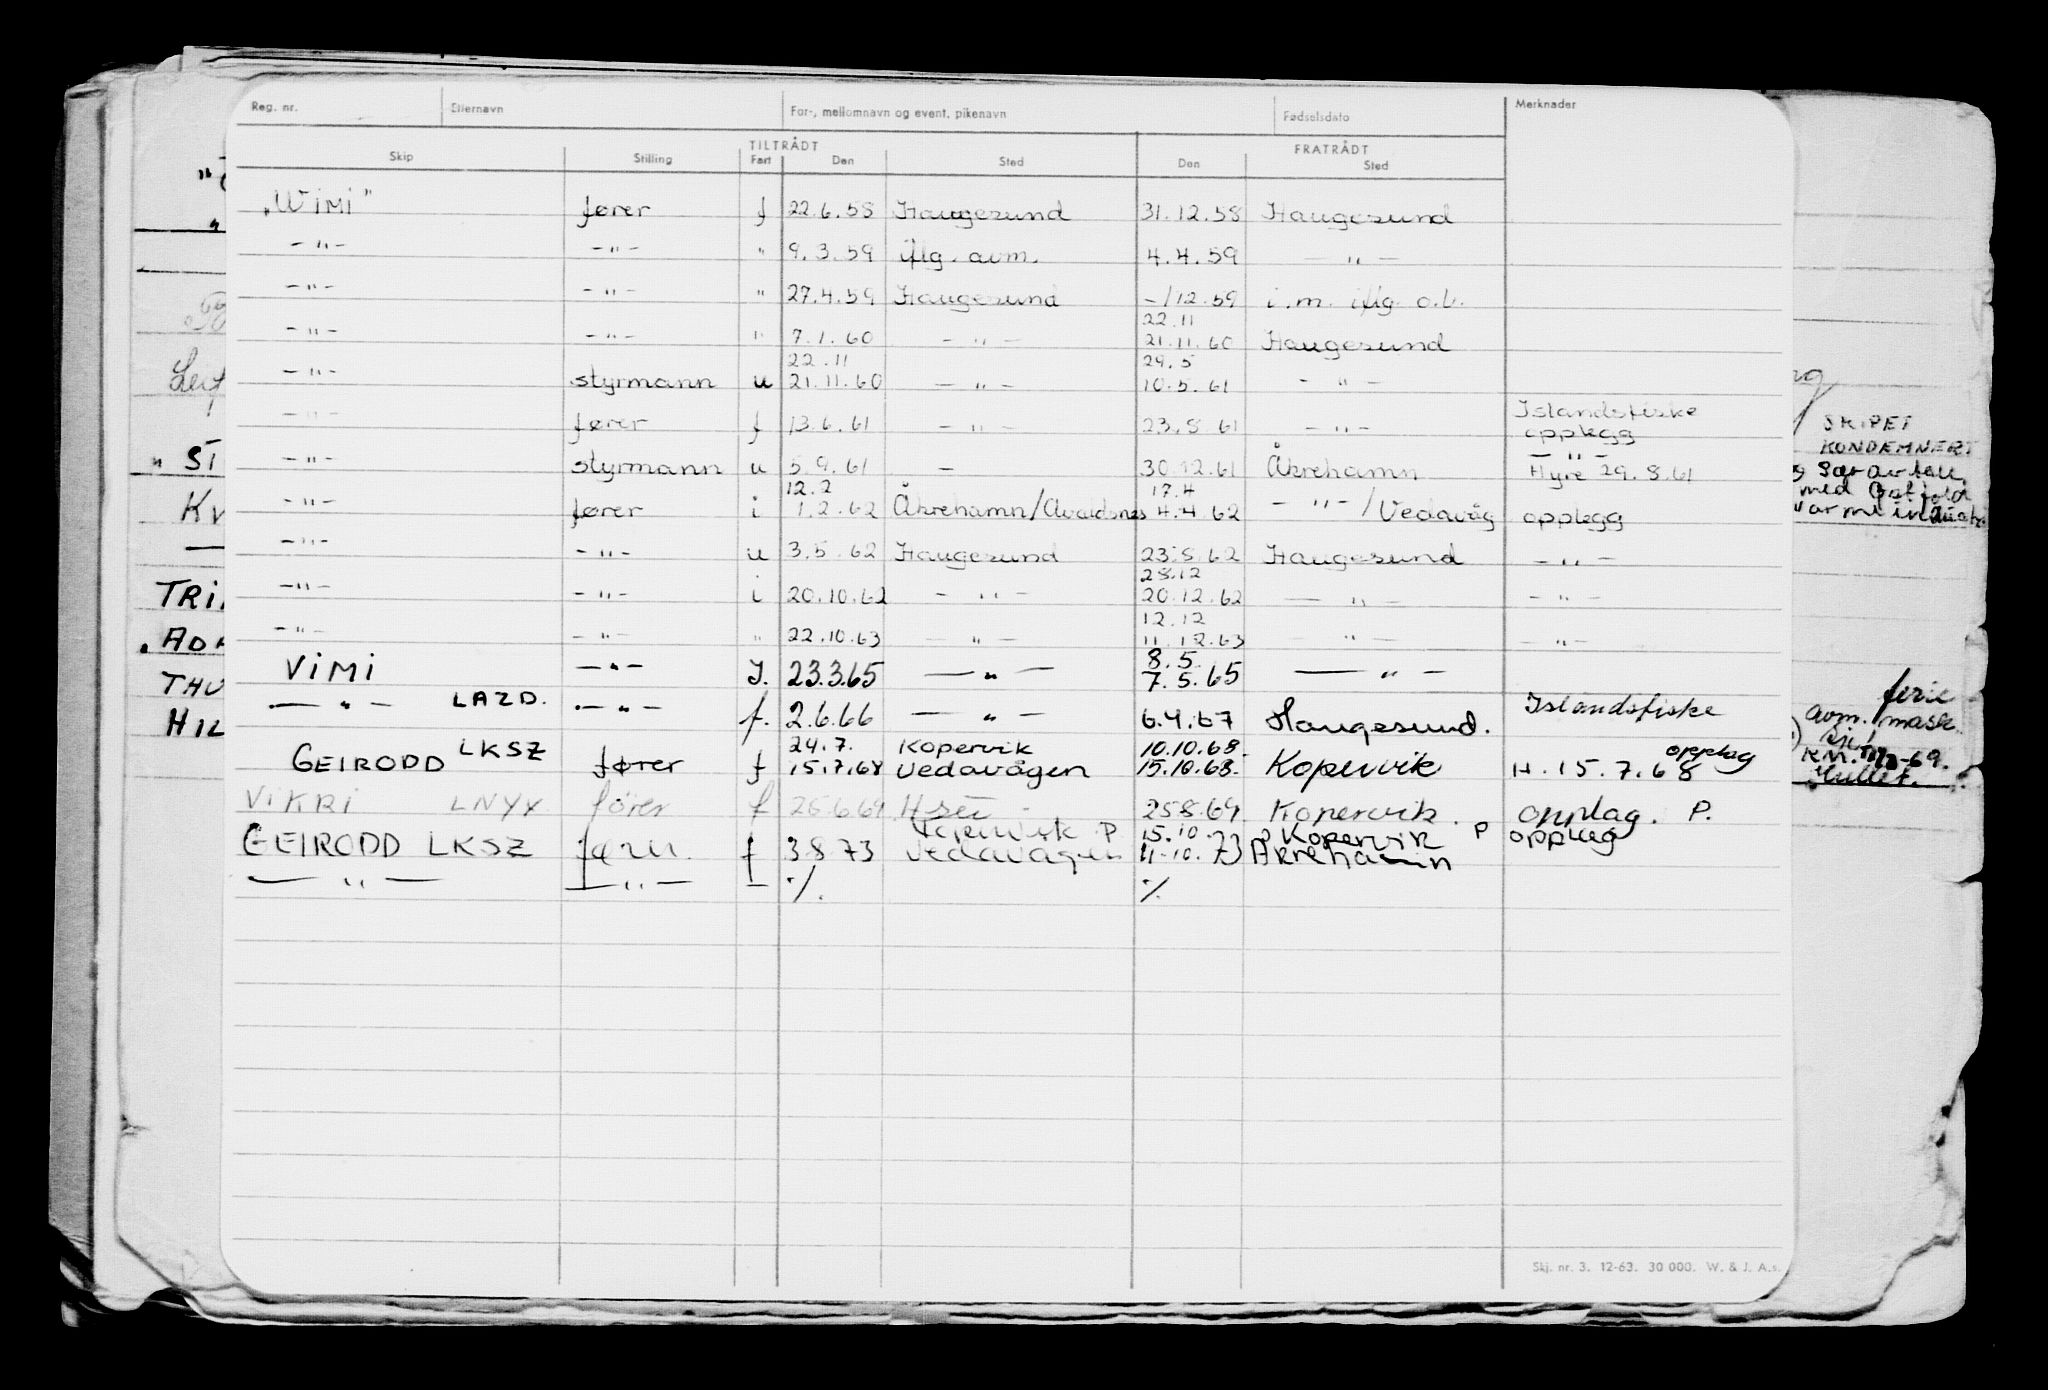 Reg. nr. Etternavn For-, mellomnavn og event. pikenavn Fødselsdato Merknader
TILTRÅDT FRATRÅDT
Skip Stilling Fart Den Sted Den Sted
"WiMi" fører f 22.6.58 Haugesund 31.12.58 Haugesund
-"- -"- " 9.3.59 iflg. avm. 4.4.59 -"-
-"- -"- " 27.4.59 Haugesund -/12.59 i.m. iflg. o.b.
22.11
-"- -"- " 7.1.60 -"- 21.11.60 Haugesund
22.11 29.5
-"- styrmann u 21.11.60 -"- 10.5.61 -"-
Islandsfiske
-"- fører f 13.6.61 -"- 23.8.61 -"- opplegg
-"-
-"- styrmann u 5.9.61 - 30.12.61 Åkrehamn Hyre 29.8.61
12.2 17.4
-"- fører i 1.2.62 Åkrehamn/Avaldsnes 4.4.62 -"-/Vedavåg opplegg
-"- -"- u 3.5.62 Haugesund 23.8.62 Haugesund -"-
28.12
-"- -"- i 20.10.62 -"- 20.12.62 -"- -"-
12.12
-"- -"- " 22.10.63 -"- 11.12.63 -"- -"-
8.5.
ViMi -"- J. 23.3.65 -"- 7.5.65 -"-
-"- LAZD. -"- f. 2.6.66 -"- 6.4.67 Haugesund. Islandsfiske
24.7. Kopervik 10.10.68. opplag
GEIRODD LKSZ fører f 15.7.68 Vedavågen 15.10.68. Kopervik H. 15.7.68
ViKRi LNYX fører f 25.8.69 Kopervik. opplag. P.
Kopervik P 15.10 Kopervik P
GEIRODD LKSZ f 3.8.73 Vedavågen 11.10.73 Åkrehamn opplegg
-"- -"- - ·/. ·/.
Skj. nr. 3. 12-63. 30 000. W. & J. A.s.
ST
KV
TRi
ADA
THU
HIL
SKIPET
KONDEMNERT
med
ferie
avm. mask